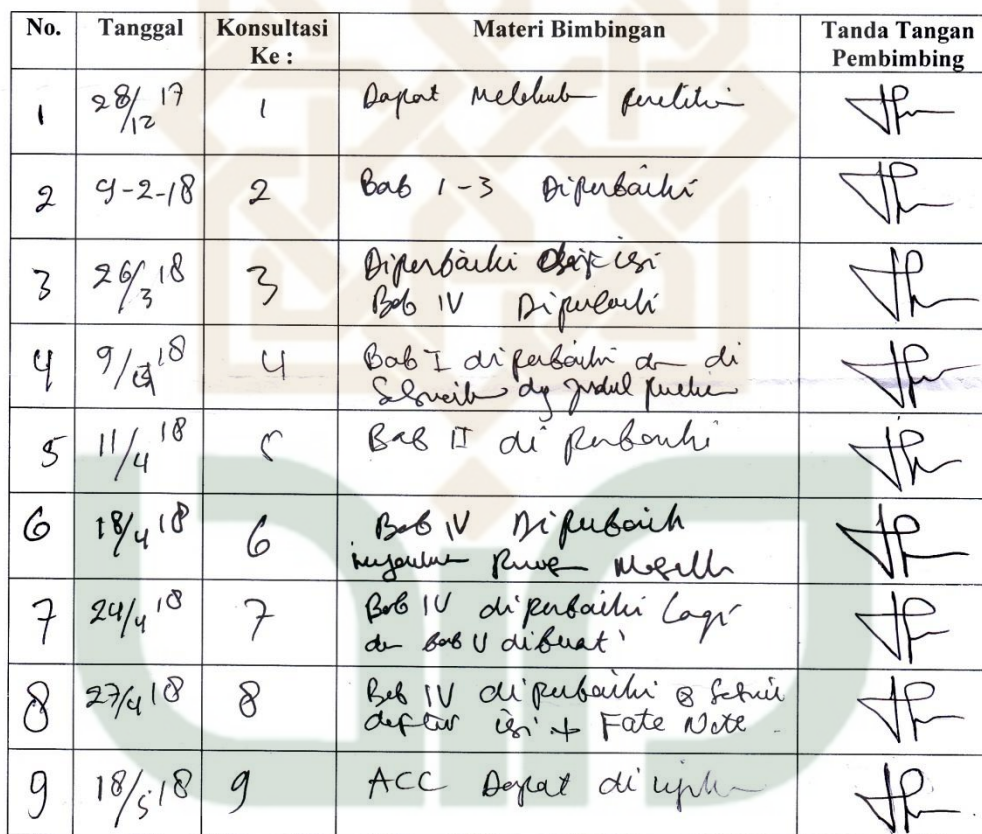 No. Tanggal Konsultasi Ke : Materi Bimbingan Tanda Tangan Pembimbing
1 28/12 17 1 Dapat
2 9-2-18 2 Bab 1-3 Diperbaiki
3 26/3 18 3 Diperbaiki isi
Bab IV Diperbaiki
4 9/4 18 4 Bab I diperbaiki di
dg judul
5 11/4 18 5 Bab II di perbaiki
6 18/4 18 6 Bab IV Diperbaiki
7 24/4 18 7 Bab IV diperbaiki Lagi
dan bab V dibuat
8 27/4 18 8 Bab IV diperbaiki
daftar isi + Fote Note
9 18/5 18 9 ACC Dapat di